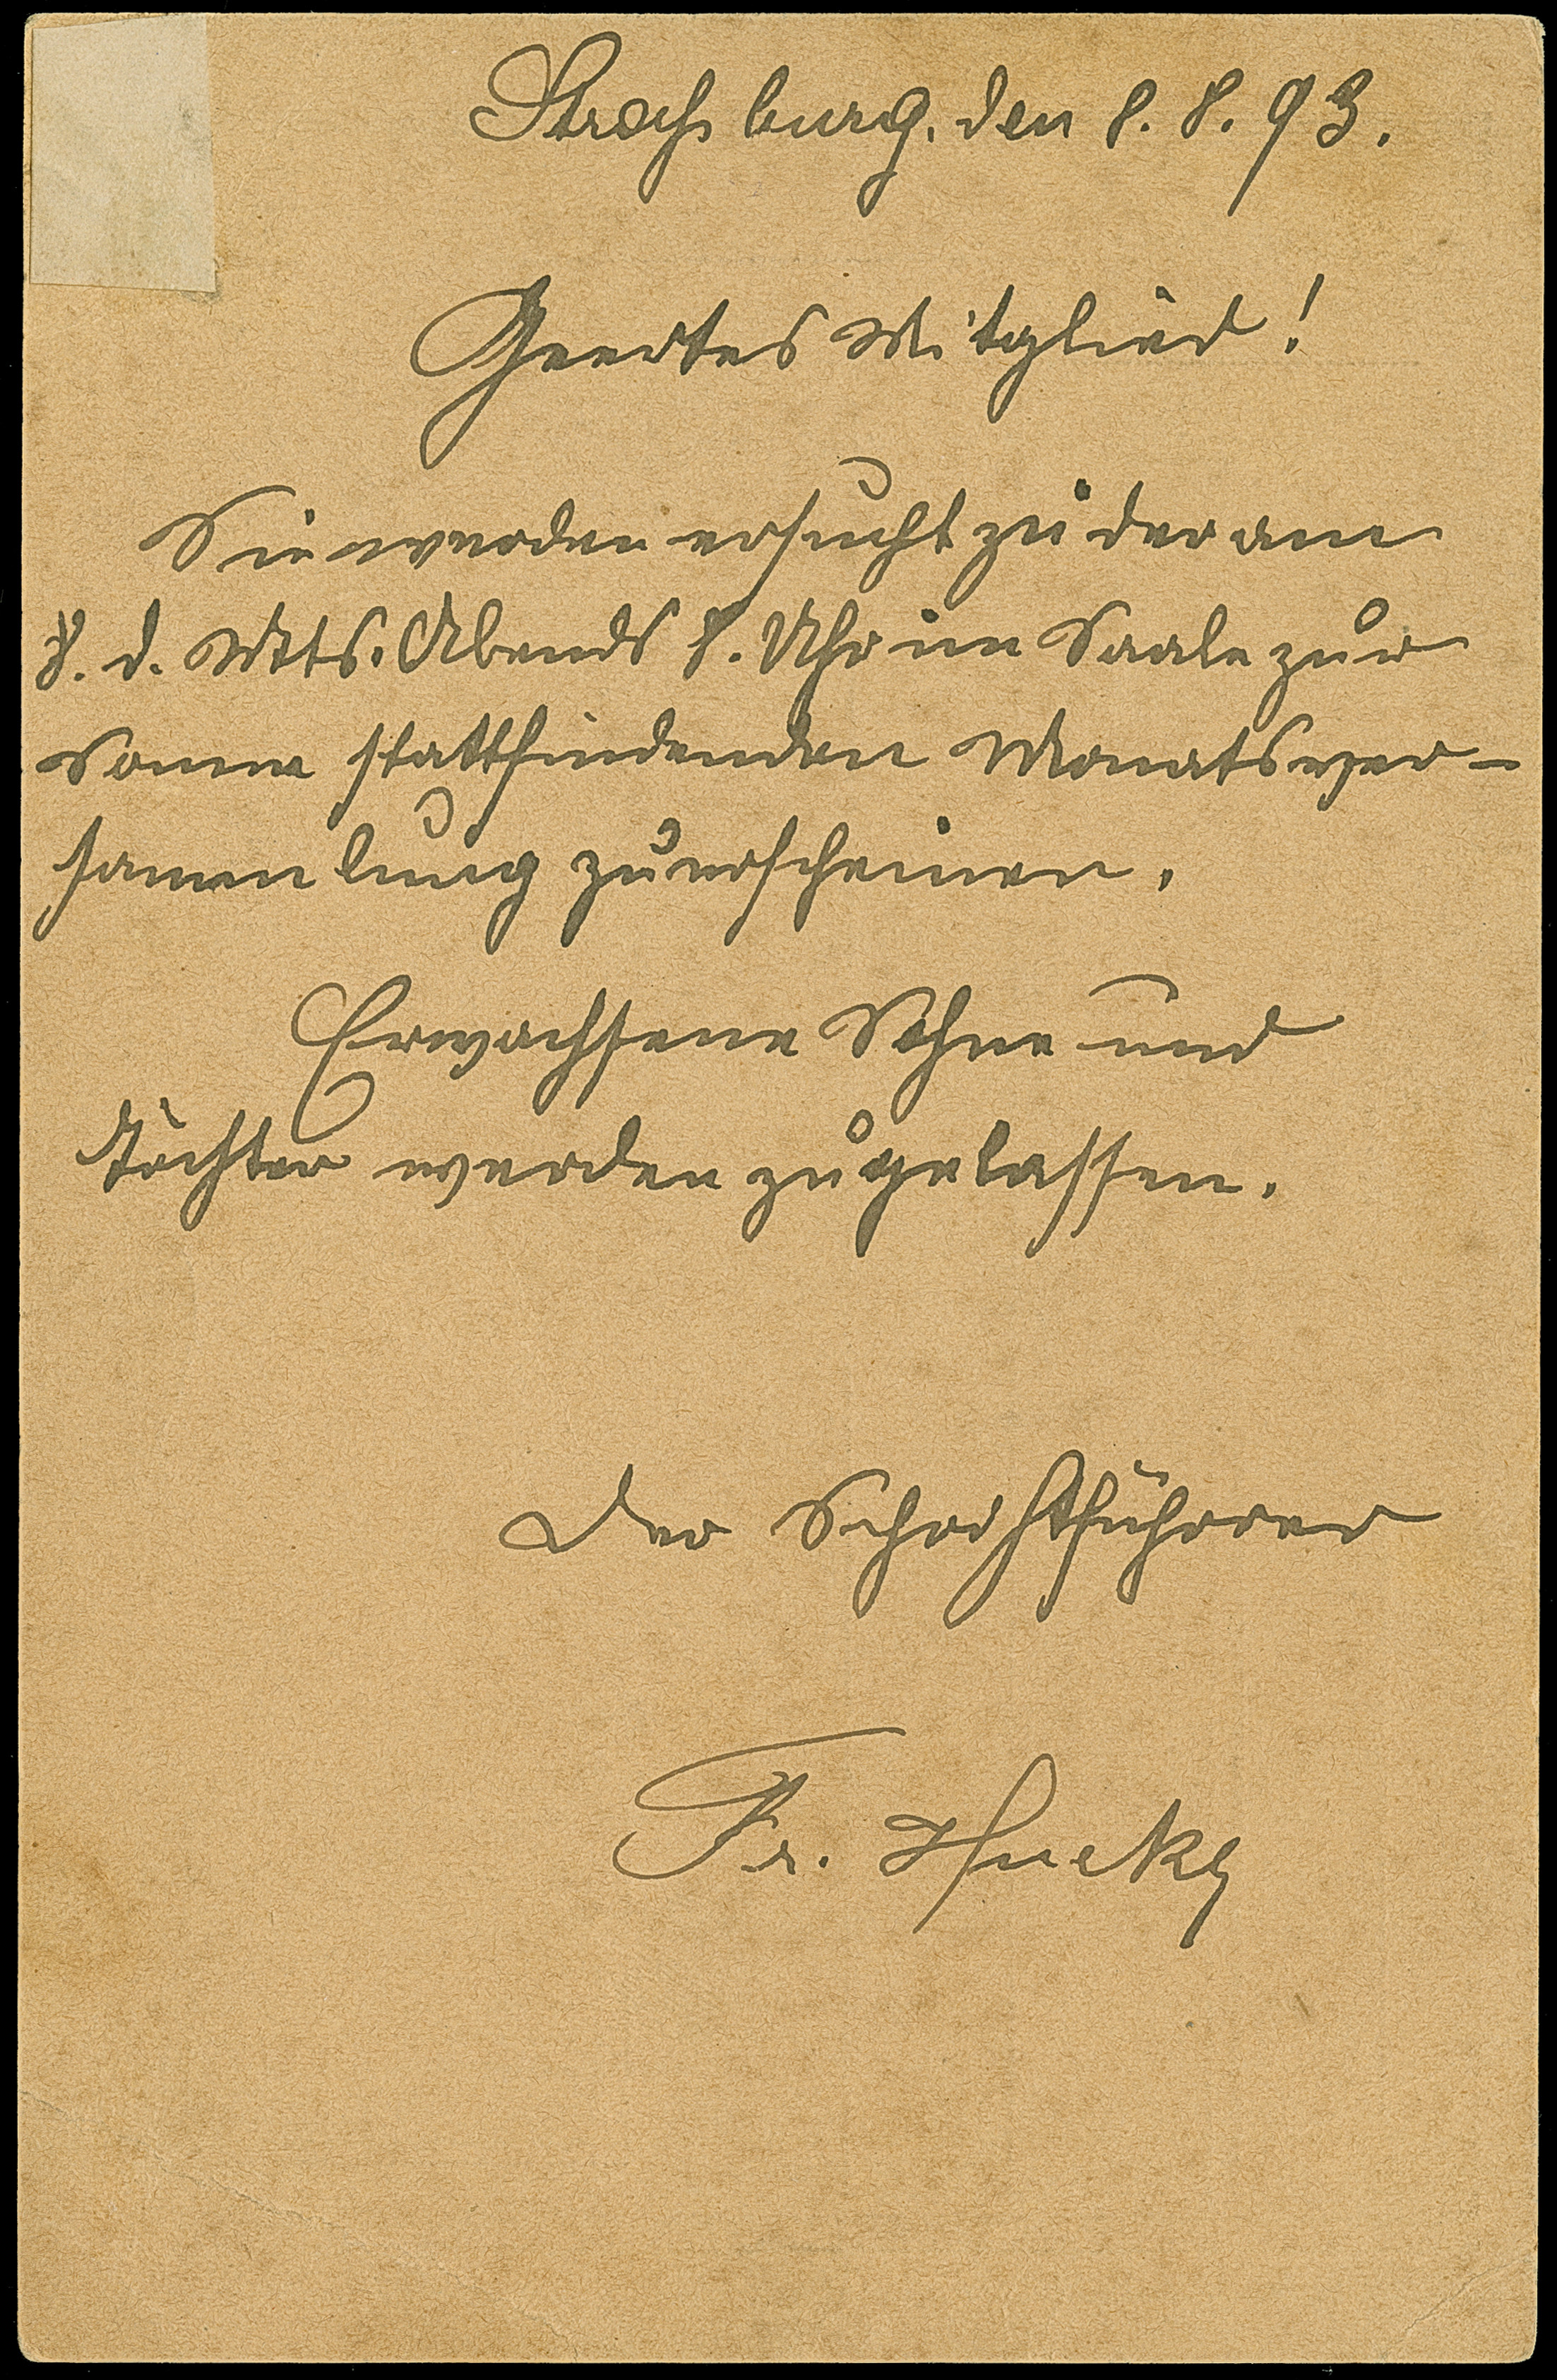 Straßburg, den 8. 8. 93.
Geertes Mitglied!
Sie werden ersucht zu der am
8. d. Mts. Abends 8. Uhr im Saale zur
Sonne stattfindenden Monatsver-
sammlung zu erscheinen.
Erwachsene Söhne und
Töchter werden zugelassen.
Der Schriftführer
Fr.